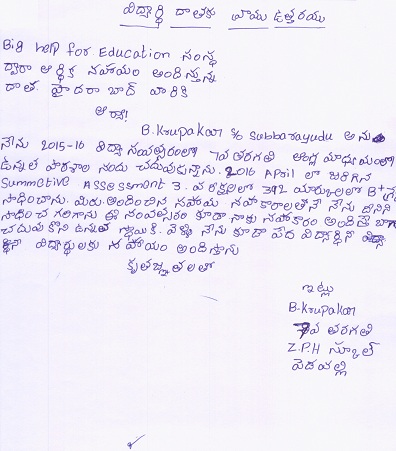 విద్యార్థి దాతకు వ్రాయు ఉత్తరము
Big help for Education సంస్థ
ద్వారా ఆర్థిక సహాయం అందిస్తున్న
దాత హైదరాబాద్ వారికి
ఆర్యా!
B. Krupakar S/o Subbarayudu అను
నేను 2015-16 విద్యా సంవత్సరంలో 7వ తరగతి ఆంగ్ల మాధ్యమంలో
ఉన్నత పాఠశాల నందు చదువుచున్నాను. 2016 April లో జరిగిన
Summative Assessment 3. పరీక్షలలో 392 మార్కులలో B+ ని
సాధించాను. మీరు అందించిన సహాయ సహకారాలతోనే నేను దీనిని
సాధించ గలిగాను ఈ సంవత్సరం కూడా నాకు సహకారం అందితే బాగా
చదువుకొని ఉన్నత స్థాయికి వెళ్ళి నేను కూడా పేద విద్యార్థిని
విద్యార్థులకు సహాయం అందిస్తాను
కృతజ్ఞతలతో
ఇట్లు
B. Krupakar
7వ తరగతి
Z.P.H స్కూల్
పెదవల్లి